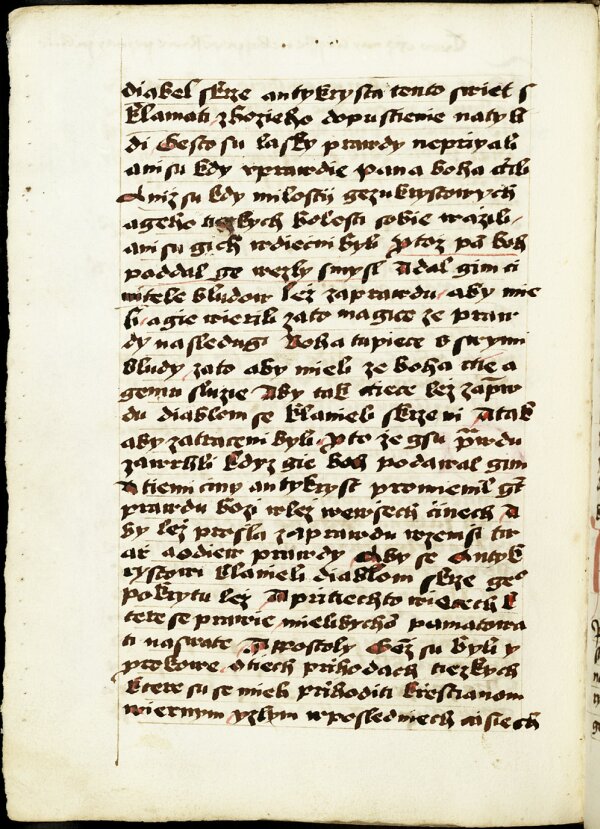 diabel skrze antykrysta tento swiet s
klamati zbozieho dopustienie natyli
di Gesto su lasky prawdy neprijali
ani su kdy wprawdie pana boha ctili
Aniz su kdy milosti gezukrystowych
ageho tiezkych bolesti sobie wazili
ani su gich wdiecni byli ptoz pan boh
poddal ge wezly smysl Adal gim ci
nitele bludow lez zaprawdu aby mie
li agie wierili zato magice ze praw
dy nasledugi Boha tupiece sswymi
bludy zato aby mieli ze boha ctie a
gemu sluzie Aby tak ctiece lez zapraw
du diablom se klanieli skrze ni Atak
aby zatraceni byli pto ze gsu prawdu
zawrhli kdyz gie boh podawal gim
Atiemi ciny antykryst promienil gest
prawdu bozi wlez wewsech cinech A
by lez prosla zaprawdu wzemsi tw
ar aodiew prawdy Aby se Antyk
rystowi klanieli diablom skrze geo
pokrytu lez A pritiechto wiecech k
tere se prawie mielibychom pamatowa
ti naswate Appostoly Genz su byli y
prokowe otiech prihodach tiezkych
ktere su se mieli prihoditi krestianom
wiernym yzlym wposledniech casiech